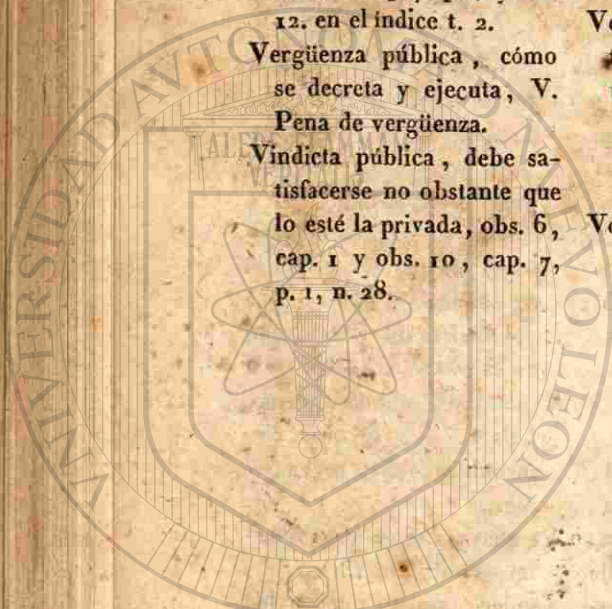 12. en el índice t. 2.
Vergüenza pública, cómo
se decreta y ejecuta, V.
Pena de vergüenza.
Vindicta pública, debe sa-
tisfacerse no obstante que
lo esté la privada, obs. 6,
cap. 1 y obs. 10, cap. 7,
p. 1, n. 28.
UNIVERSIDAD AUTONOMA DE NUEVO LEON